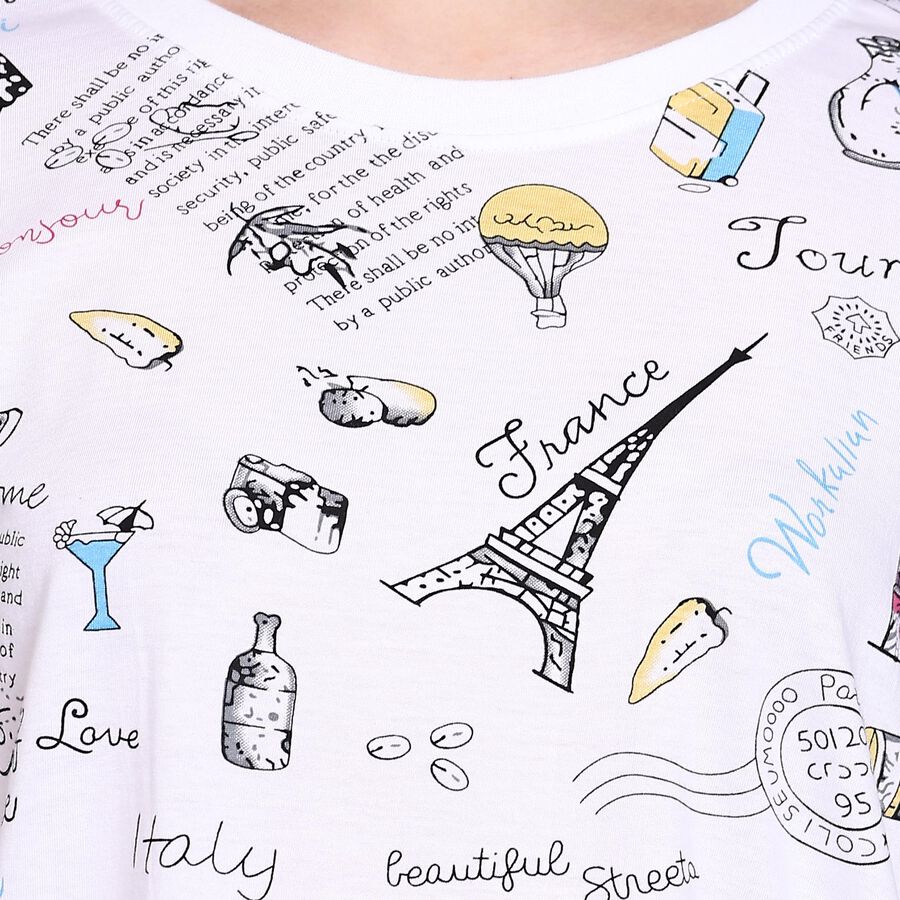 There shall be no in
by a public autho
exe e of this rig
as in accordance
and is necessary in
society in the intere
security, public safe
being of the country
me, for the the dis
protection of health and
protection of the rights
There shall be no int
by a public autho
onjour
Tour
FRIENDS
France
Workalian
me
ublic
ight
and
in
of
try
Love
Pa
COLISEUMOOOO
50120
95
Italy
beautiful
Streeta